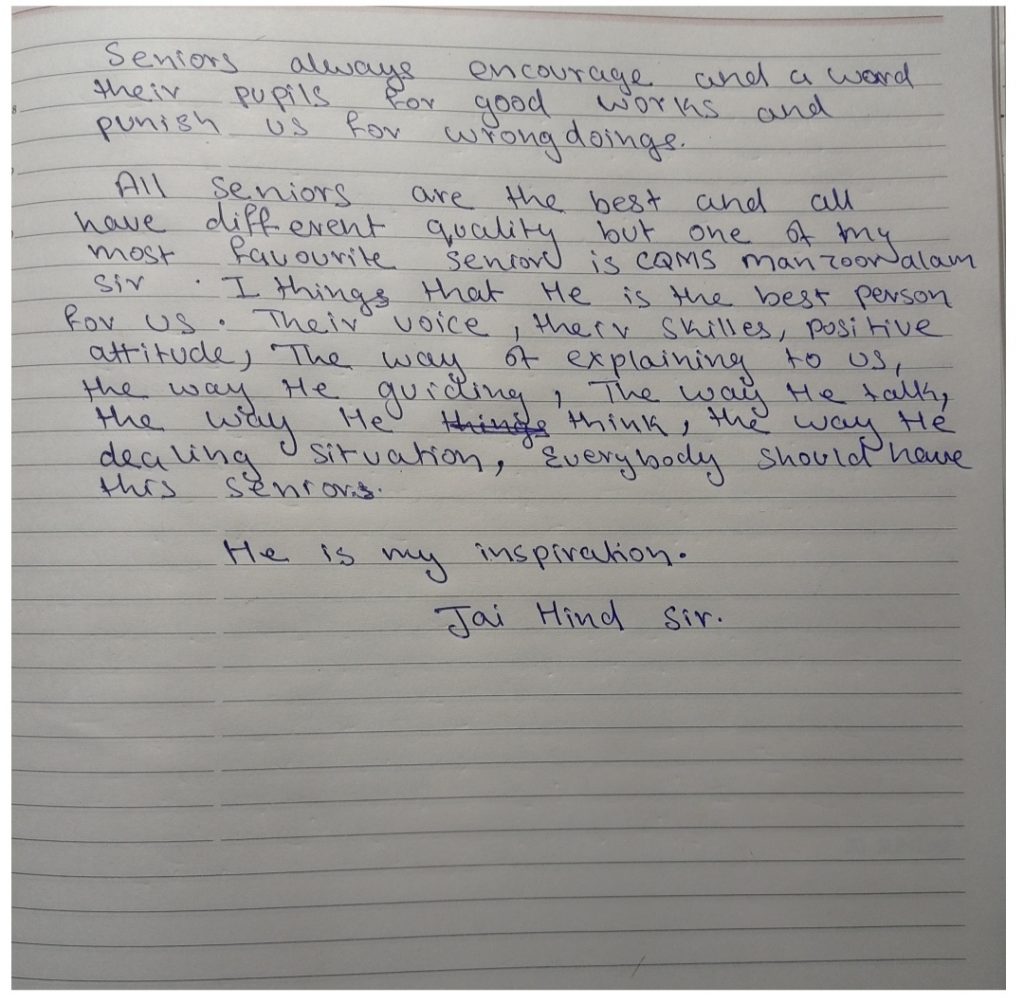 Seniors always encourage and a word
their pupils for good works and
punish us for wrong doings.
All seniors are the best and all
have different quality but one of my
most favourite senior is CQMS manzoor alam
sir . I things that He is the best person
for us. Their voice, their skilles, positive
attitude, The way of explaining to us,
the way He guiding, The way He talk,
the way He things think, the way He
dealing situation, Everybody should have
this seniors.
He is my inspiration.
Jai Hind Sir.